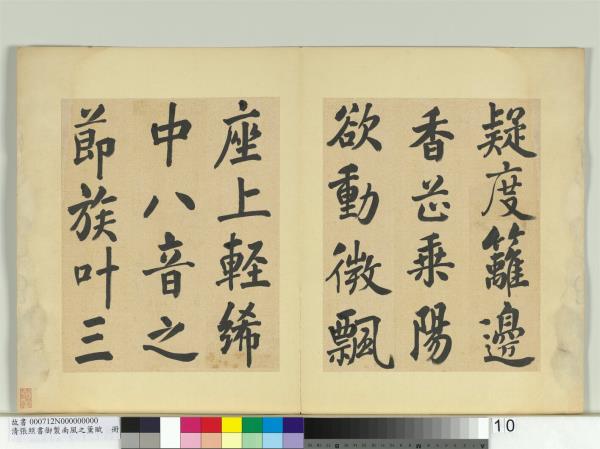 疑度籬邊
香芷乗陽
欲動微飄
座上軽絺
中八音之
節族叶三
故書 000712N000000000
清張照書御製南風之薰賦 冊
10